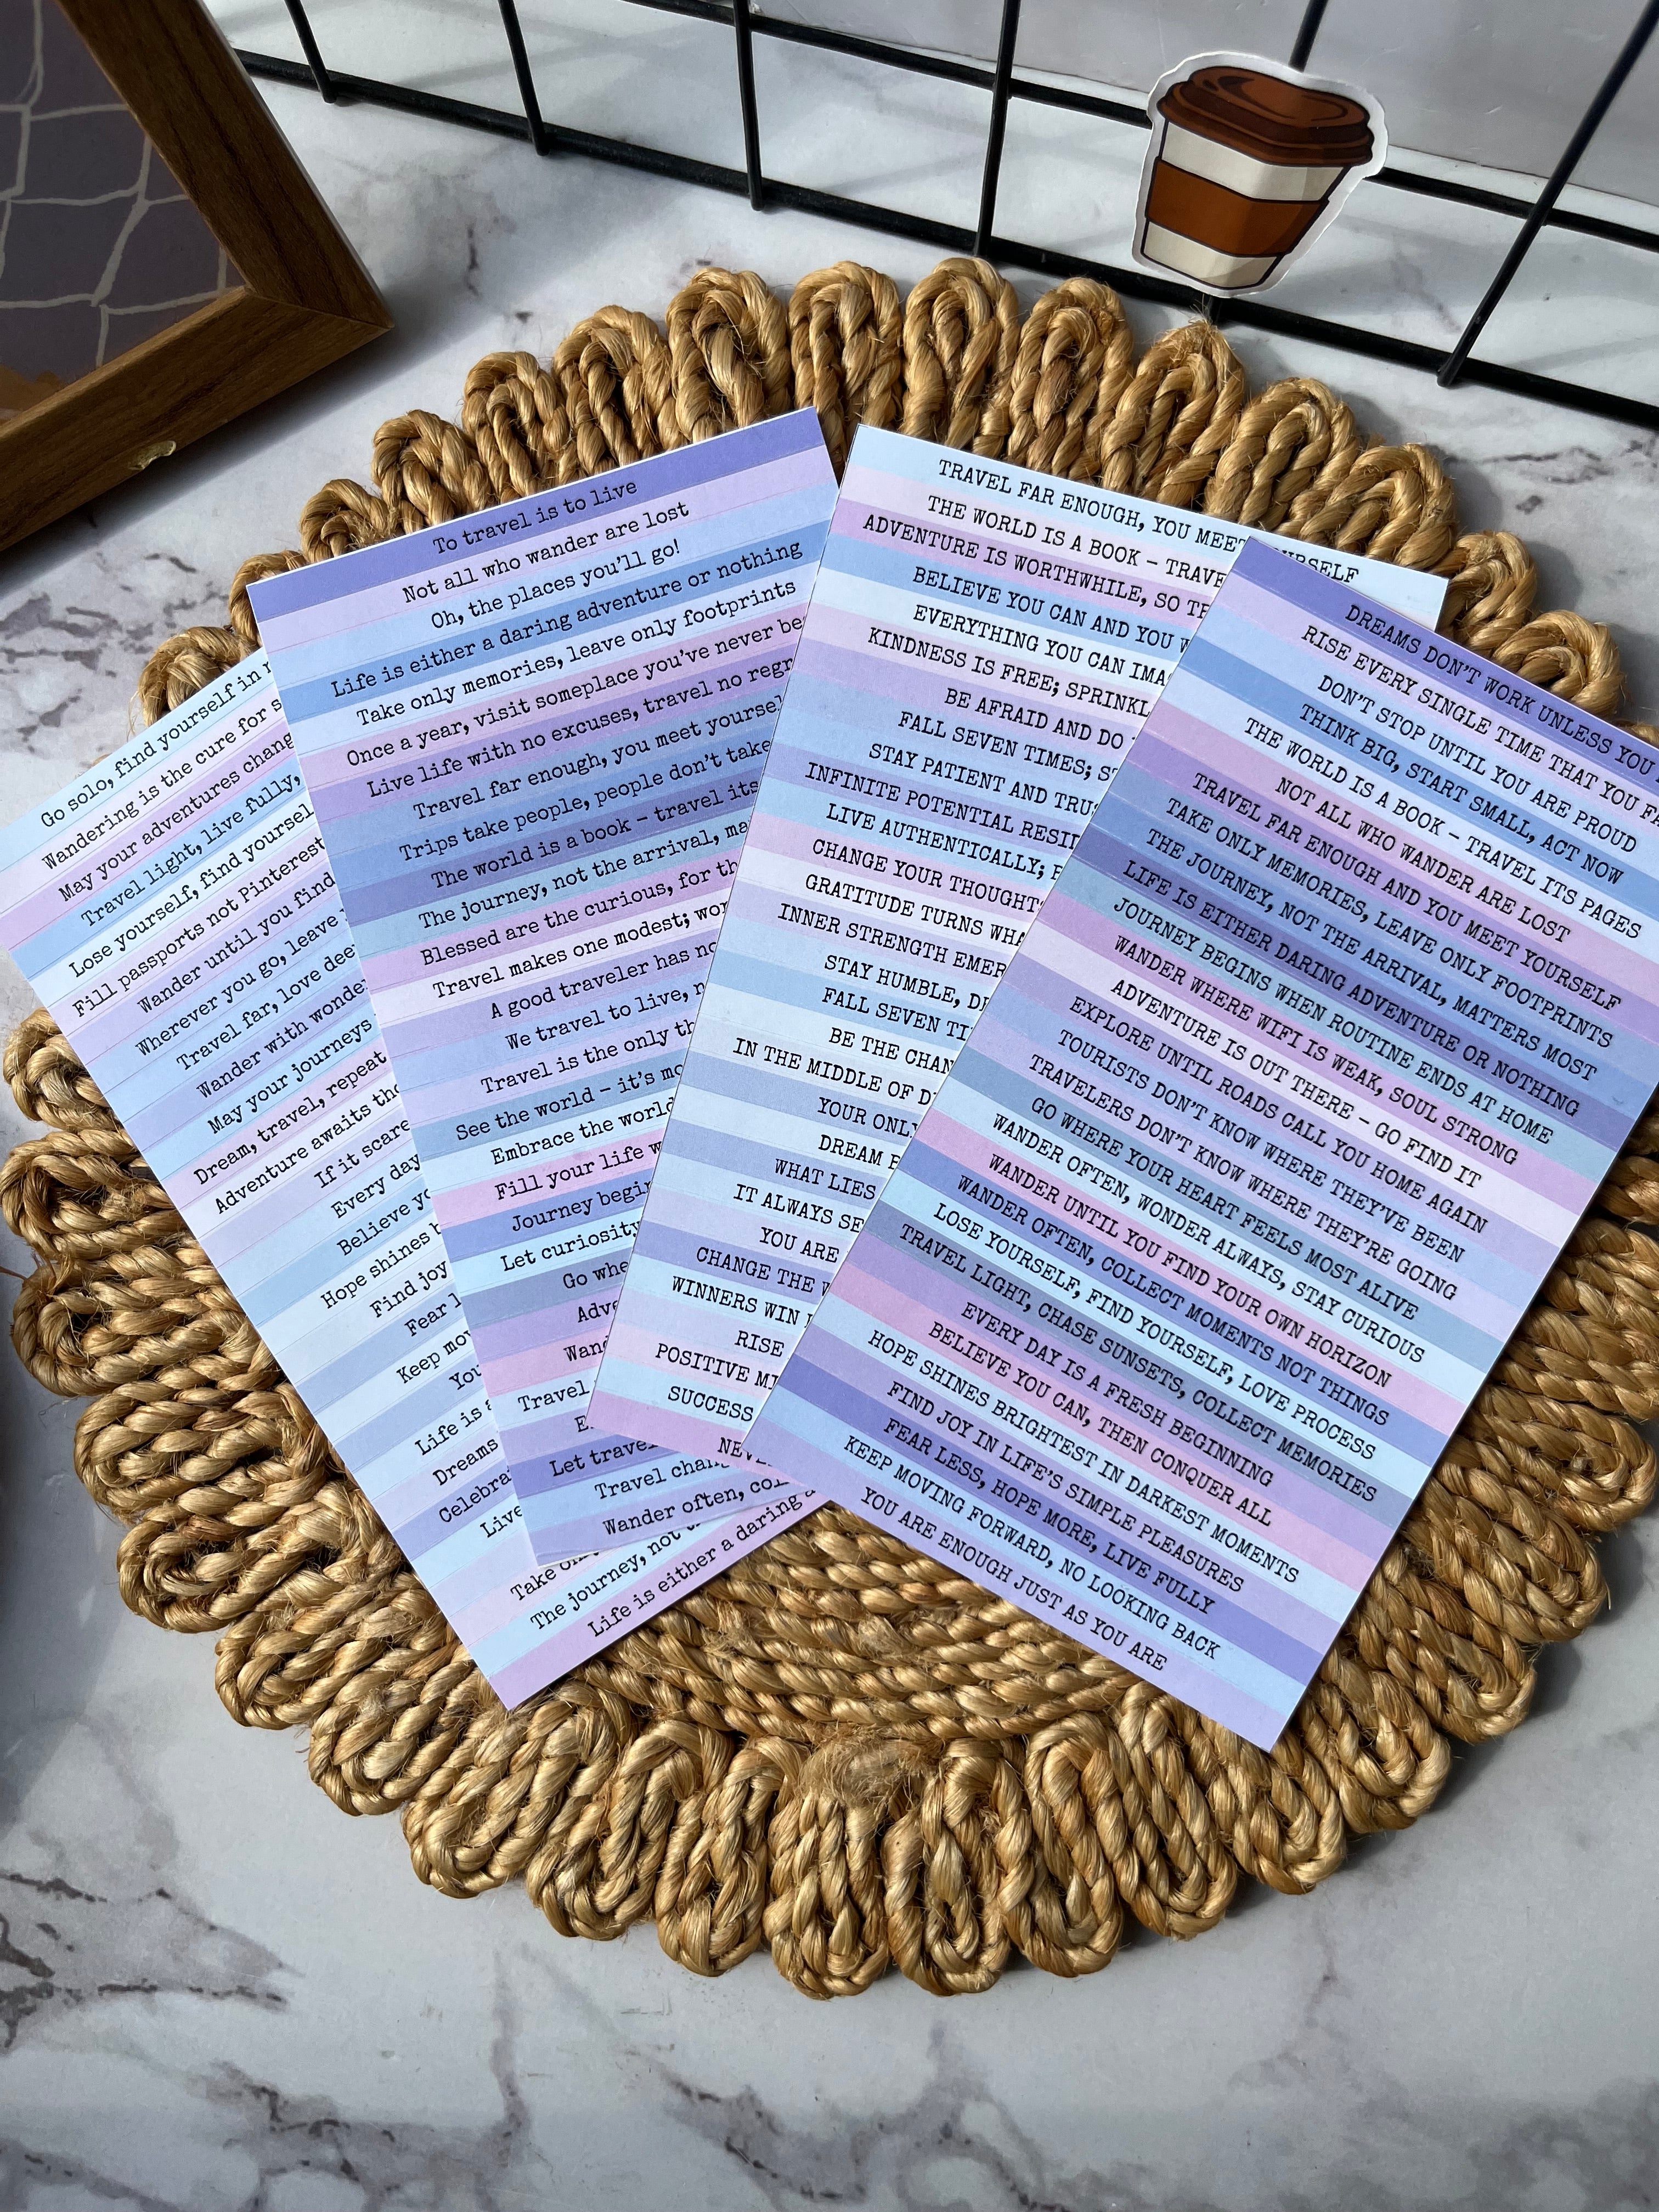 Go solo, find yourself in
Wandering is the cure for
May your adventures
Travel light, live fully,
Lose yourself, find
Fill passports not
Wander until you find
Wherever you go, leave
Travel far, love
Wander with
May your journeys
Dream, travel, repeat
Adventure awaits
If it
Every day
Believe
Hope shines
Find joy
Fear
Keep
Life is
Dreams
Take
The journey, not
Life is either a daring
To travel is to live
Not all who wander are lost
Oh, the places you'll go!
Life is either a daring adventure or nothing
Take only memories, leave only footprints
Once a year, visit someplace you've never
Live life with no excuses, travel no
Travel far enough, you meet
Trips take people, people don't take
The world is a book - travel its
The journey, not the arrival,
Blessed are the curious, for
Travel makes one modest;
A good traveler has
We travel to live,
Travel is the only
See the world - it's
Embrace the world
Fill your life
Journey
Let curiosity
Go
Travel
Let travel
Travel
Wander often,
TRAVEL FAR ENOUGH, YOU MEET
THE WORLD IS A BOOK -
ADVENTURE IS WORTHWHILE, SO
BELIEVE YOU CAN AND YOU
EVERYTHING YOU CAN
KINDNESS IS FREE;
BE AFRAID AND DO
FALL SEVEN TIMES;
STAY PATIENT AND
INFINITE POTENTIAL
LIVE AUTHENTICALLY;
CHANGE YOUR
GRATITUDE TURNS
INNER STRENGTH
STAY HUMBLE,
FALL SEVEN
BE THE
IN THE MIDDLE OF
YOUR
DREAM
WHAT LIES
IT ALWAYS
YOU ARE
CHANGE THE
WINNERS WIN
RISE
POSITIVE
SUCCESS
DREAMS DON'T WORK UNLESS YOU
RISE EVERY SINGLE TIME THAT YOU
DON'T STOP UNTIL YOU ARE PROUD
THINK BIG, START SMALL, ACT NOW
THE WORLD IS A BOOK - TRAVEL ITS PAGES
NOT ALL WHO WANDER ARE LOST
TRAVEL FAR ENOUGH AND YOU MEET YOURSELF
TAKE ONLY MEMORIES, LEAVE ONLY FOOTPRINTS
THE JOURNEY, NOT THE ARRIVAL, MATTERS MOST
LIFE IS EITHER DARING ADVENTURE OR NOTHING
JOURNEY BEGINS WHEN ROUTINE ENDS AT HOME
WANDER WHERE WIFI IS WEAK, SOUL STRONG
ADVENTURE IS OUT THERE - GO FIND IT
EXPLORE UNTIL ROADS CALL YOU HOME AGAIN
TOURISTS DON'T KNOW WHERE THEY'VE BEEN
TRAVELERS DON'T KNOW WHERE THEY'RE GOING
GO WHERE YOUR HEART FEELS MOST ALIVE
WANDER OFTEN, WONDER ALWAYS, STAY CURIOUS
WANDER UNTIL YOU FIND YOUR OWN HORIZON
WANDER OFTEN, COLLECT MOMENTS NOT THINGS
LOSE YOURSELF, FIND YOURSELF, LOVE PROCESS
TRAVEL LIGHT, CHASE SUNSETS, COLLECT MEMORIES
EVERY DAY IS A FRESH BEGINNING
BELIEVE YOU CAN, THEN CONQUER ALL
HOPE SHINES BRIGHTEST IN DARKEST MOMENTS
FIND JOY IN LIFE'S SIMPLE PLEASURES
FEAR LESS, HOPE MORE, LIVE FULLY
KEEP MOVING FORWARD, NO LOOKING BACK
YOU ARE ENOUGH JUST AS YOU ARE